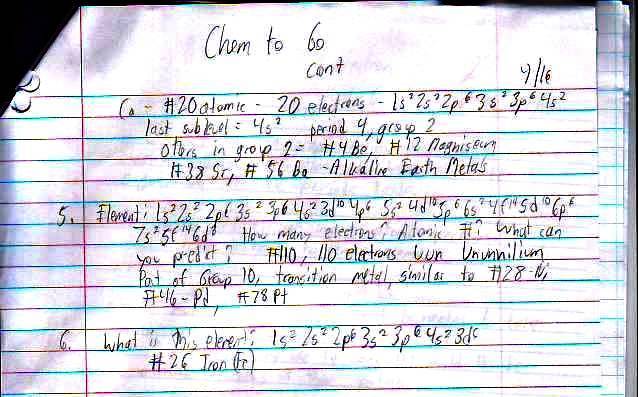 Chem to Go
cont
4/16
Ca - #20 atomic - 20 electrons - 1s² 2s² 2p⁶ 3s² 3p⁶ 4s²
last sublevel = 4s² period 4, group 2
Others in group 2 = #4 Be, #12 Magniseum
#38 Sr, #56 Ba - Alkaline Earth Metals
5. Element: 1s² 2s² 2p⁶ 3s² 3p⁶ 4s² 3d¹⁰ 4p⁶ 5s² 4d¹⁰ 5p⁶ 6s² 4f¹⁴ 5d¹⁰ 6p⁶
7s² 5f¹⁴ 6d⁸ How many electrons? Atomic #? What can
you predict? #110, 110 electrons Uun Ununnilium
Part of Group 10, transition metal, similar to #28-Ni
#46-Pd, #78 Pt
6. What is this element? 1s² 2s² 2p⁶ 3s² 3p⁶ 4s² 3d⁶
#26 Iron (Fe)